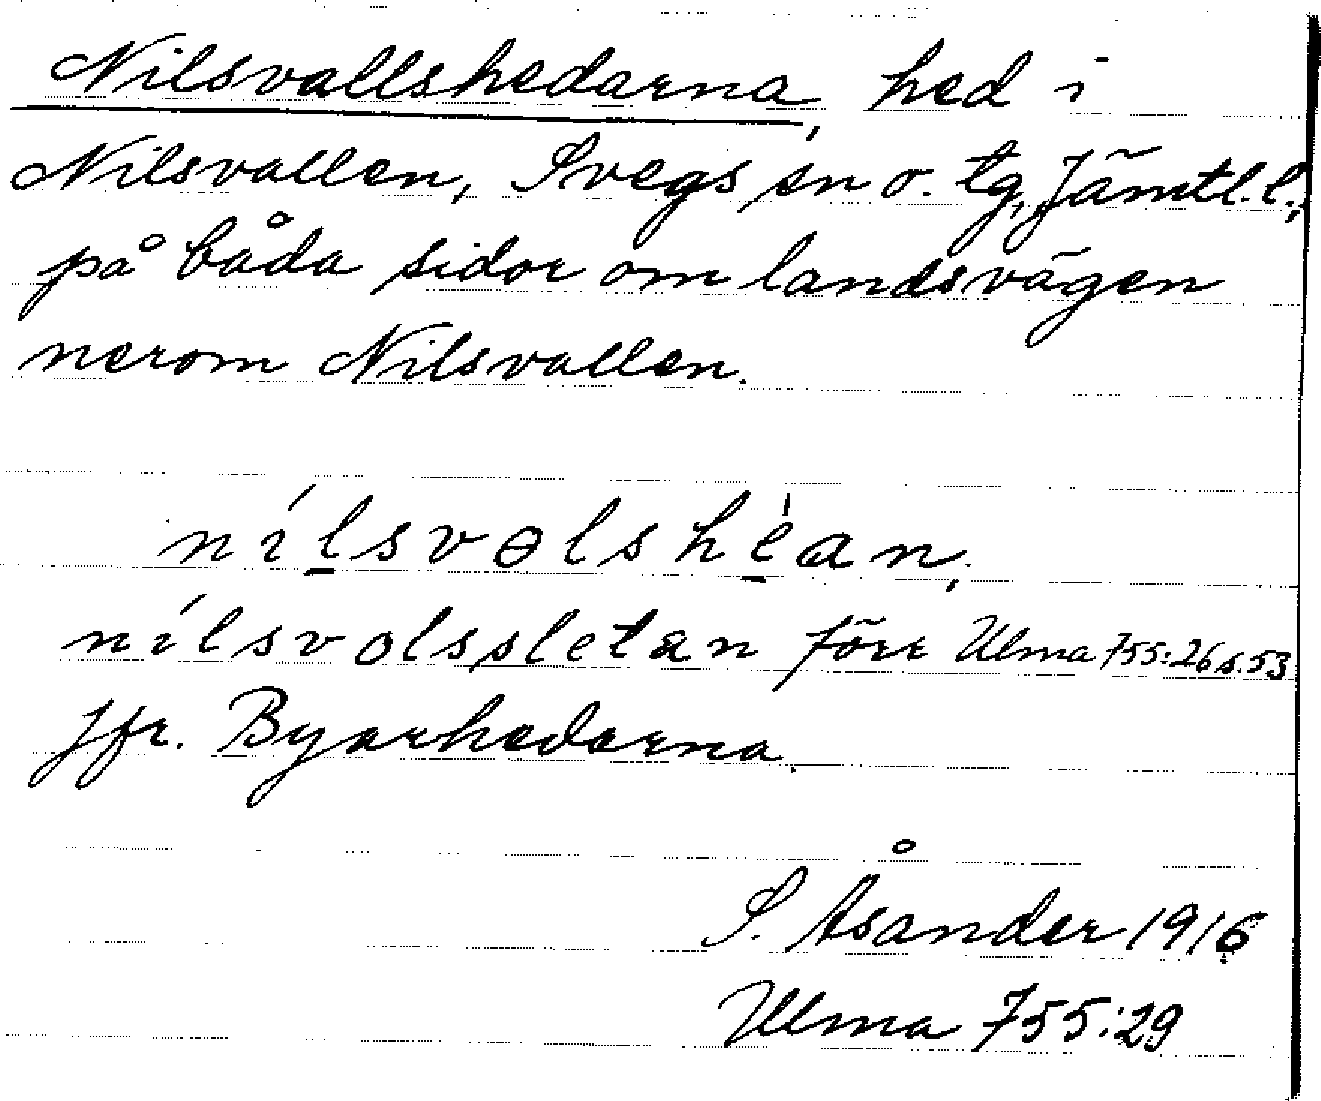 Nilsvallshedarna, hed i
Nilsvallen, Svegs sn o. tg, Jämtl.l.,
på båda sidor om landsvägen
nerom Nilsvallen.
nílsvɵlshèan,
nílsvolssletan förr Ulma 755:26 s.53
Jfr. Byarhedarna.
S. Åsander 1916
Ulma 755:29